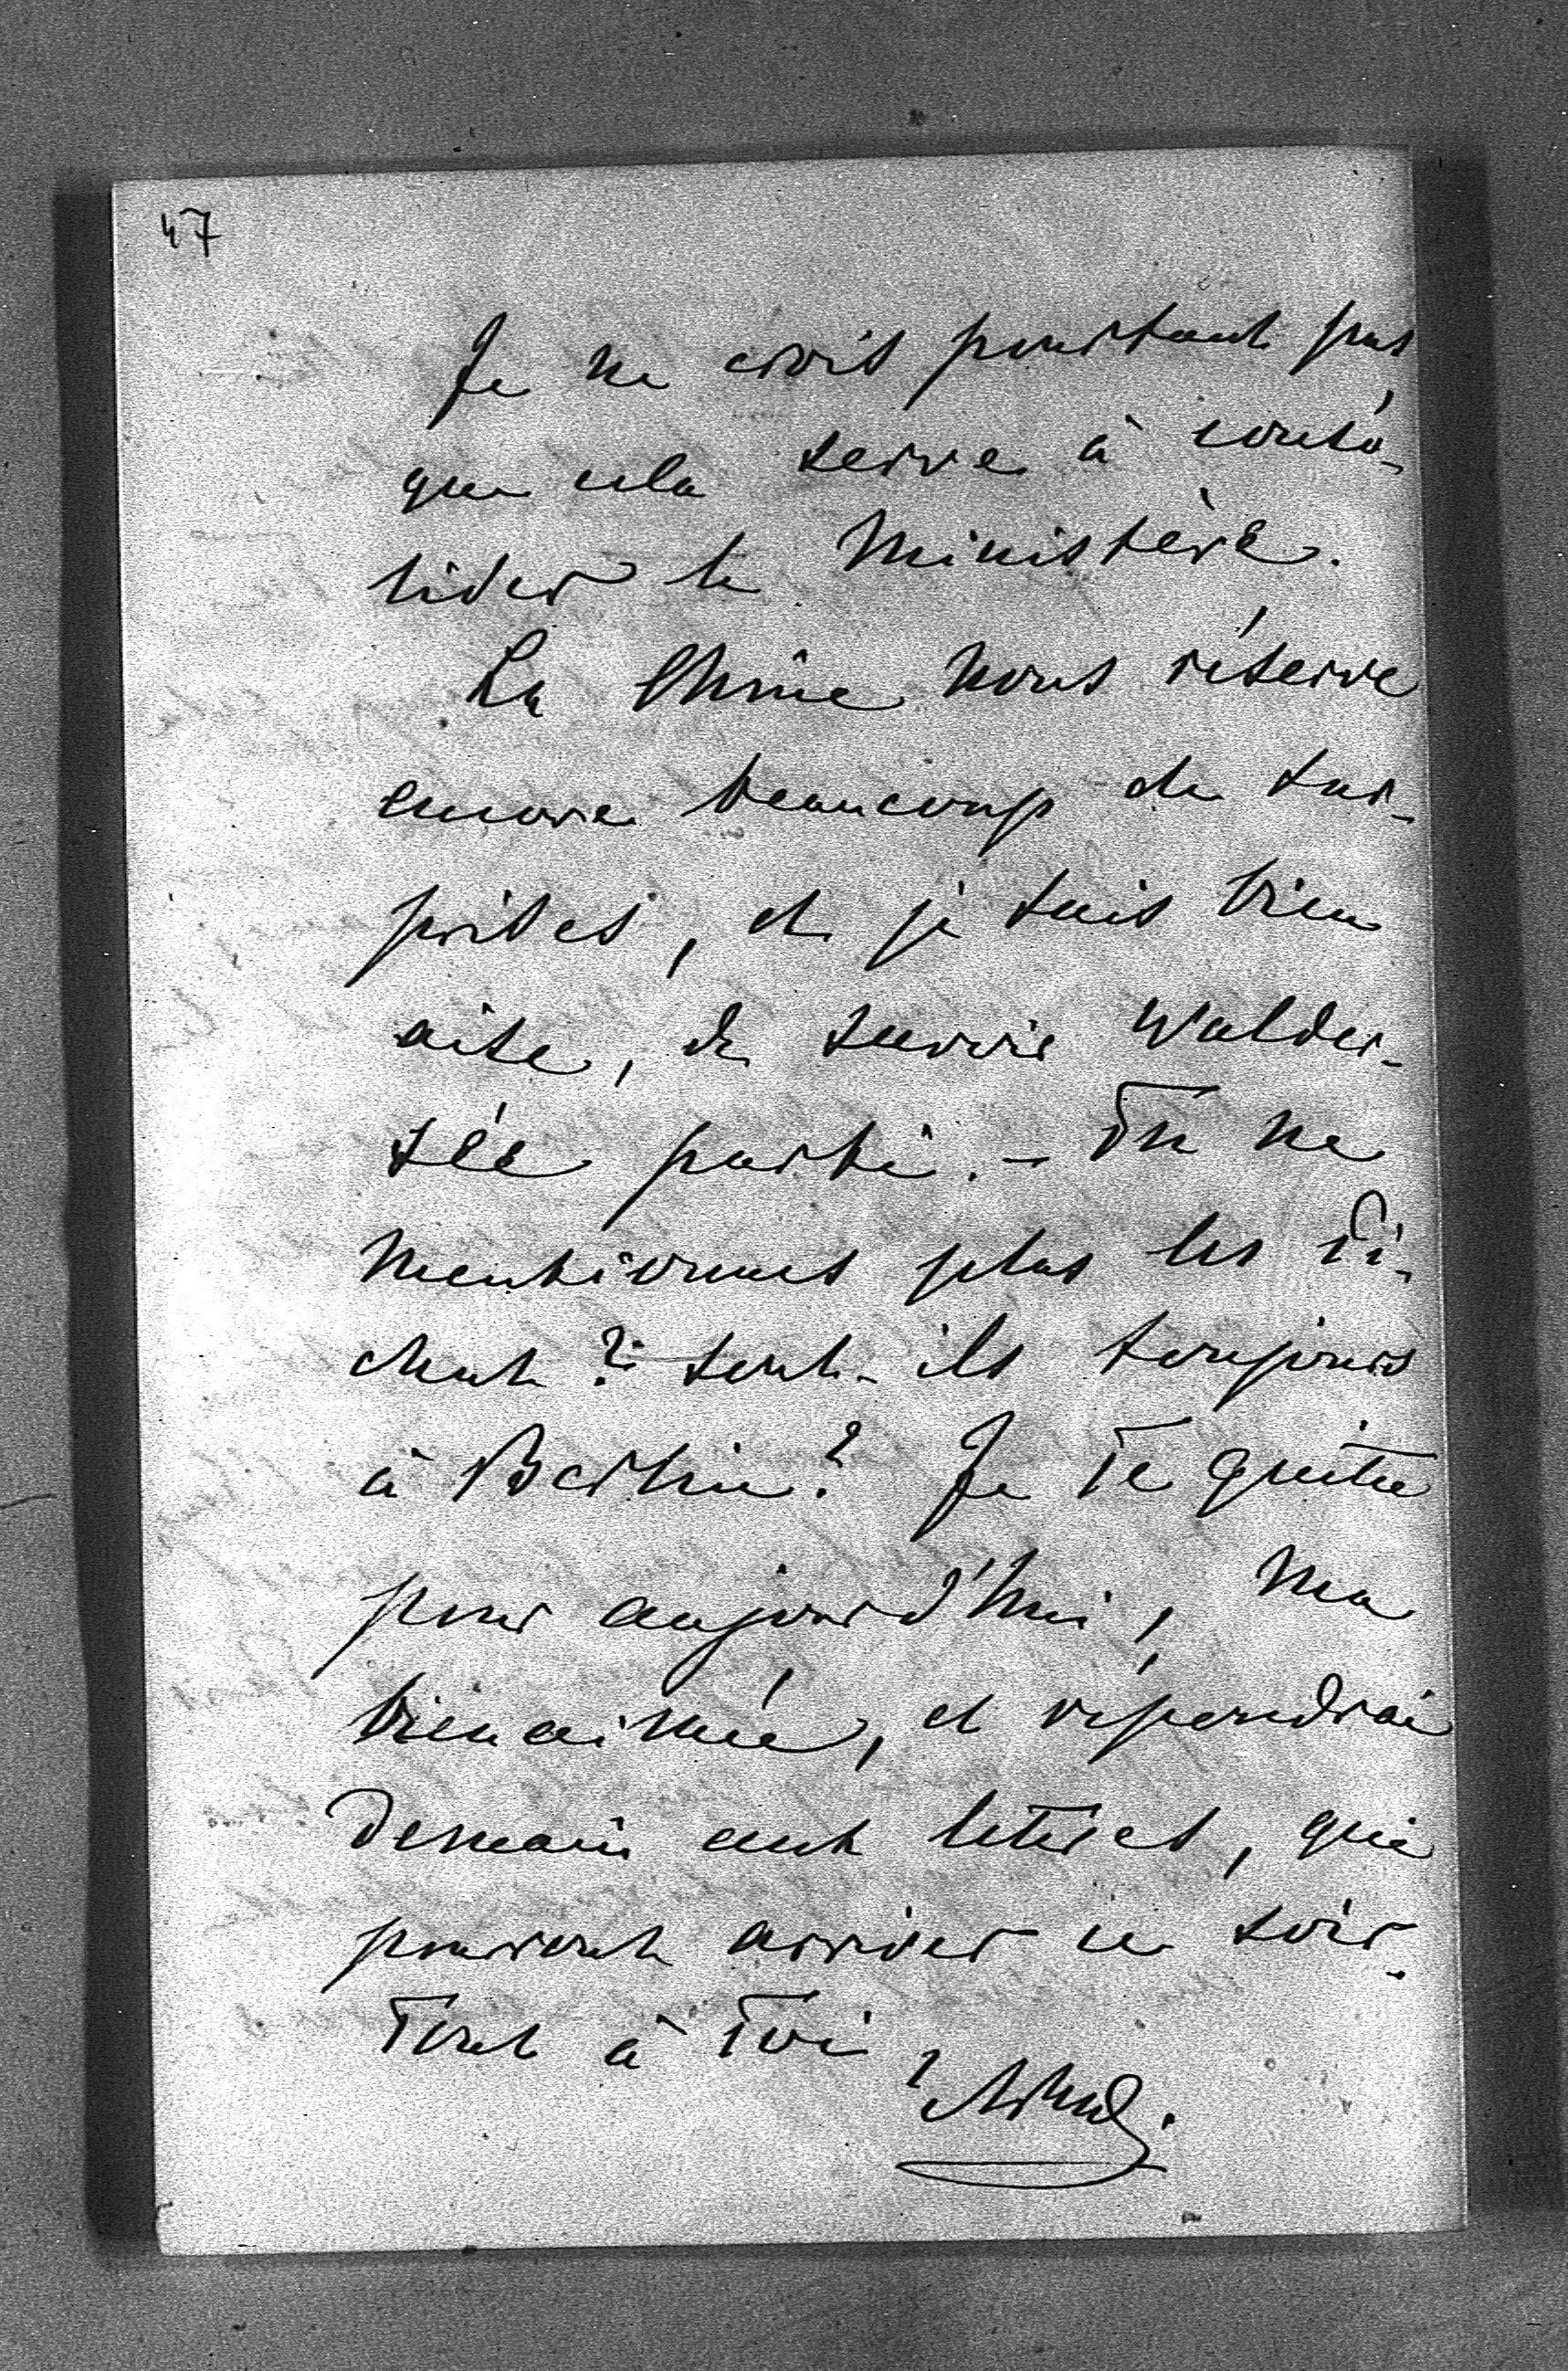 47
Je ne crois pourtant pas,
que cela serve à conso-
lider le Ministère.
La Chine nous réserve
encore beaucoup de sur-
prises, et je suis bien
aise, de savoir Walder-
sée parti. – Tu ne
mentionnes plus les Ti-
chut? sont-ils toujours
à Berlin? Je Te quitte
pour aujourd'hui, ma
bienaimée, et répondrai
Demain aux lettres, qui
pourront arriver ce soir.
Tout à Toi